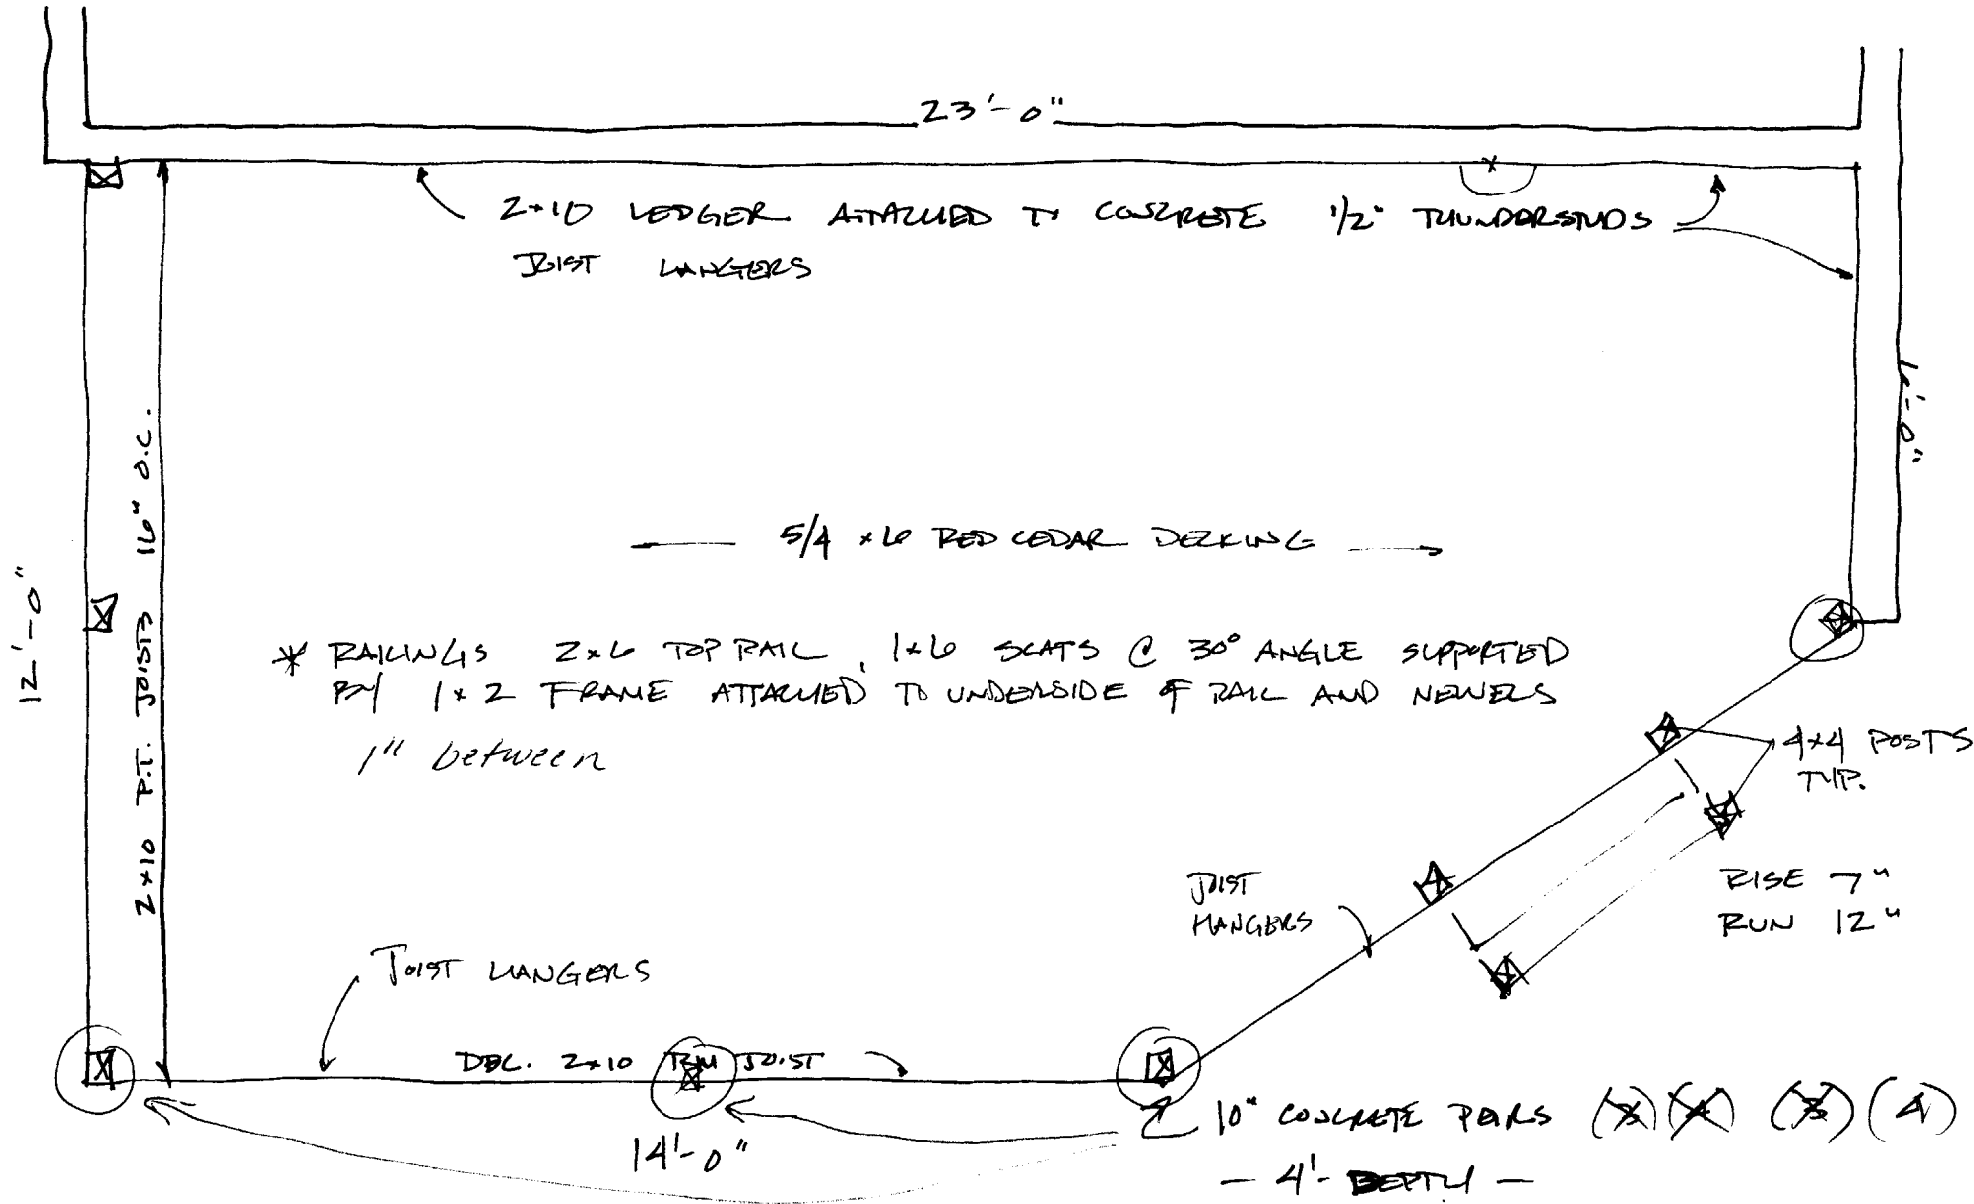 23'-0"
2x10 LEDGER ATTACHED TO CONCRETE 1/2" THUNDERSTUDS
JOIST HANGERS
6'-0"
12'-0"
2x10 P.T. JOISTS 16" O.C.
5/4 x6 RED CEDAR DECKING
* RAILINGS 2x6 TOP RAIL, 1x6 SLATS @ 30° ANGLE SUPPORTED
BY 1x2 FRAME ATTACHED TO UNDERSIDE OF RAIL AND NEWELS
1" between
4x4 POSTS
TYP.
RISE 7"
RUN 12"
JOIST
HANGERS
JOIST HANGERS
DBL. 2x10 RIM JOIST
14'-0"
10" CONCRETE PEIRS (4)
- 4'- DEPTH -